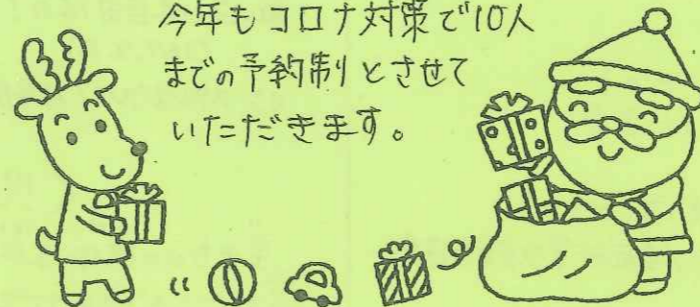 今年もコロナ対策で10人
までの予約制とさせて
いただきます。